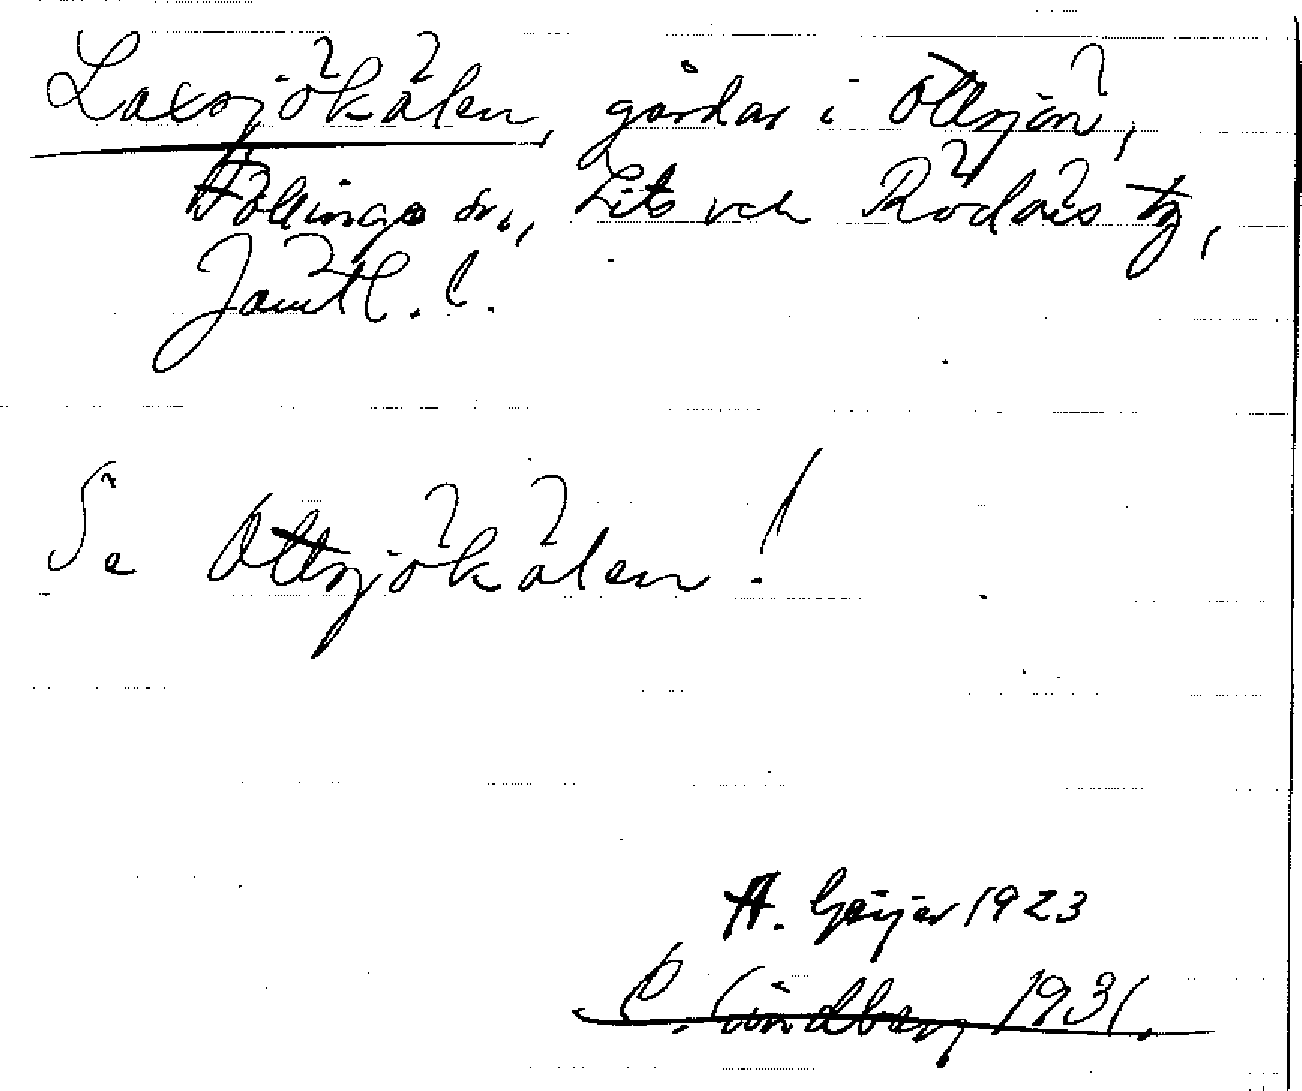 Laxsjökälen, gårdar i Ottsjön,
Föllinge sn., Lits och Rödöns tg,
Jämtl. l.
Se Ottsjökälen!
H. Geijer 1923
C. Lindberg 1931.